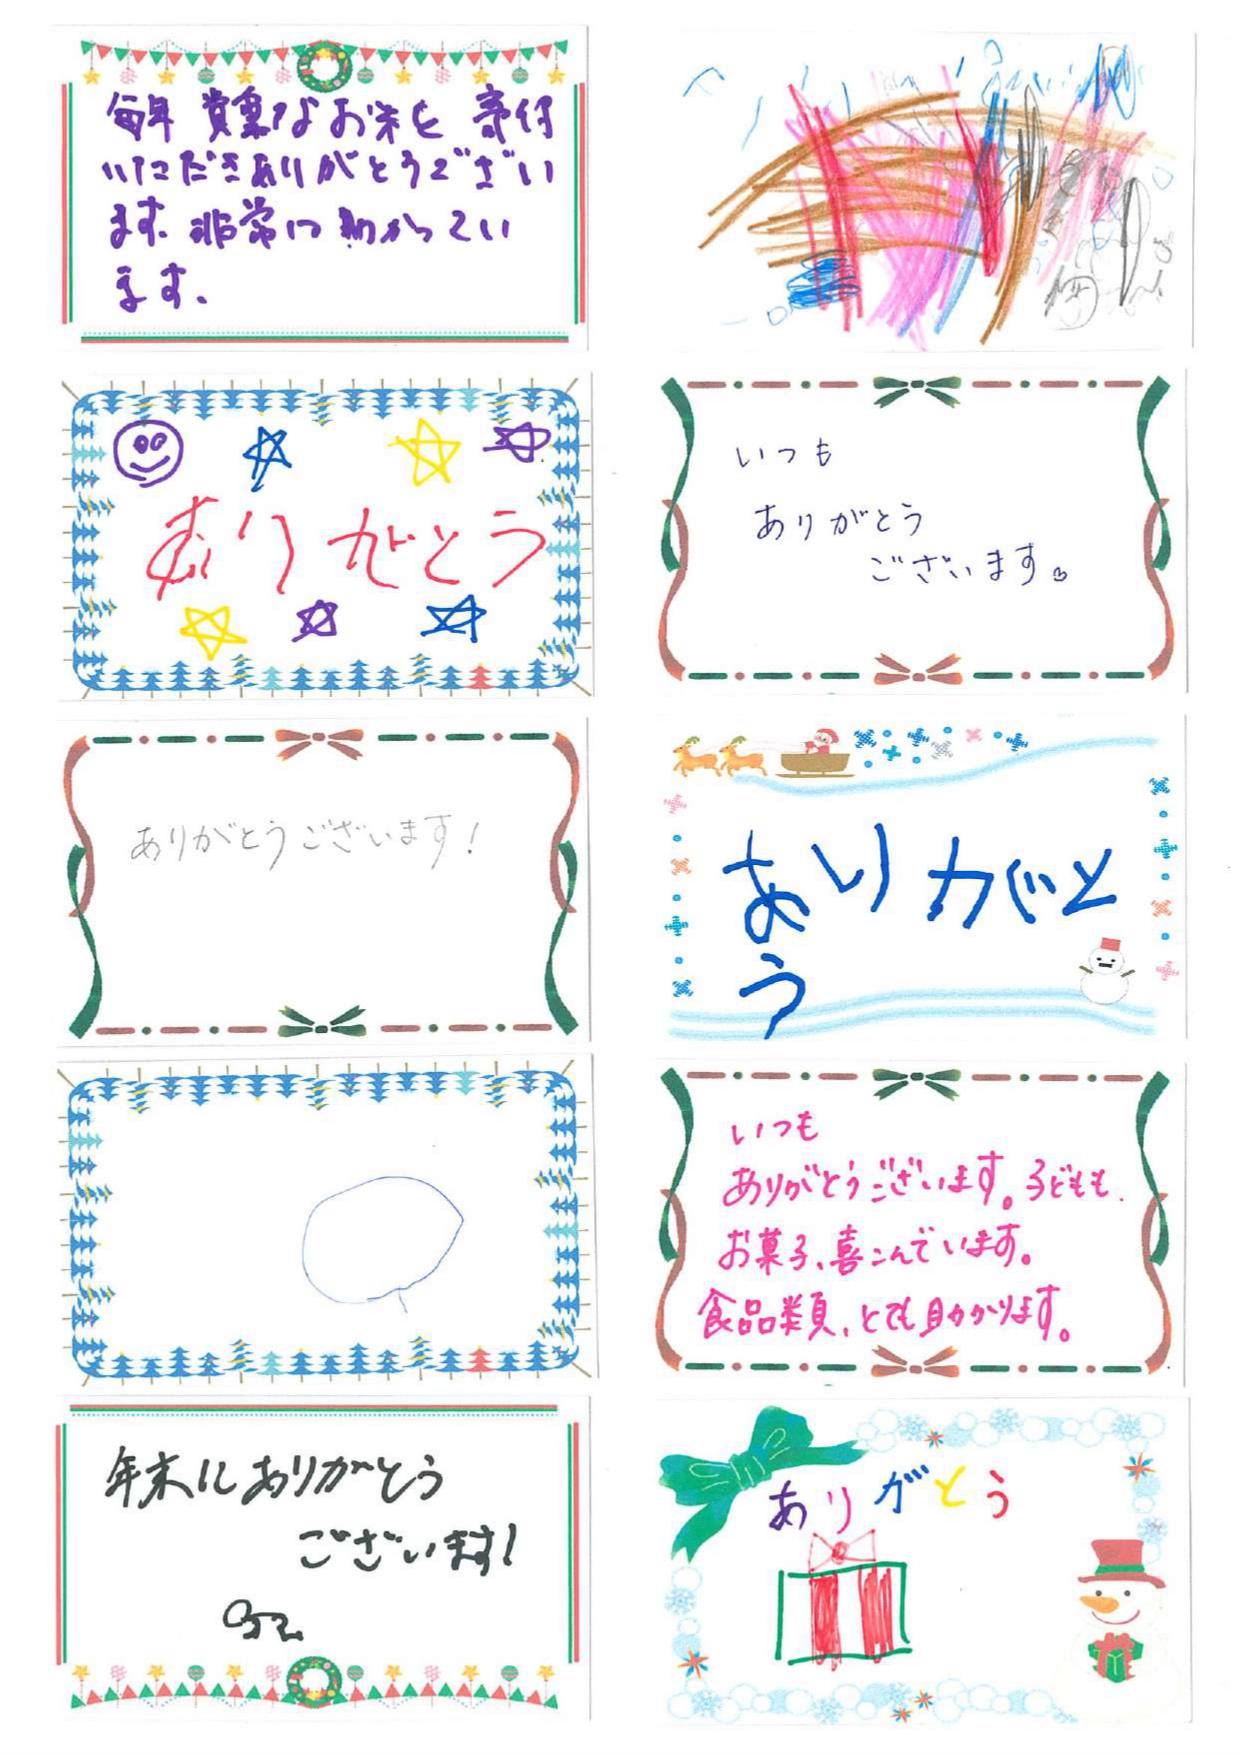 毎年 貴重なお米を 寄付
いただきありがとうござい
ます。非常に助かってい
ます。
ありがとう
いつも
ありがとう
ございます。
ありがとうございます!
ありがと
う
いつも
ありがとうございます。子どもも、
お菓子、喜こんでいます。
食品類、とても助かります。
年末にありがとう
ございます!
ありがとう